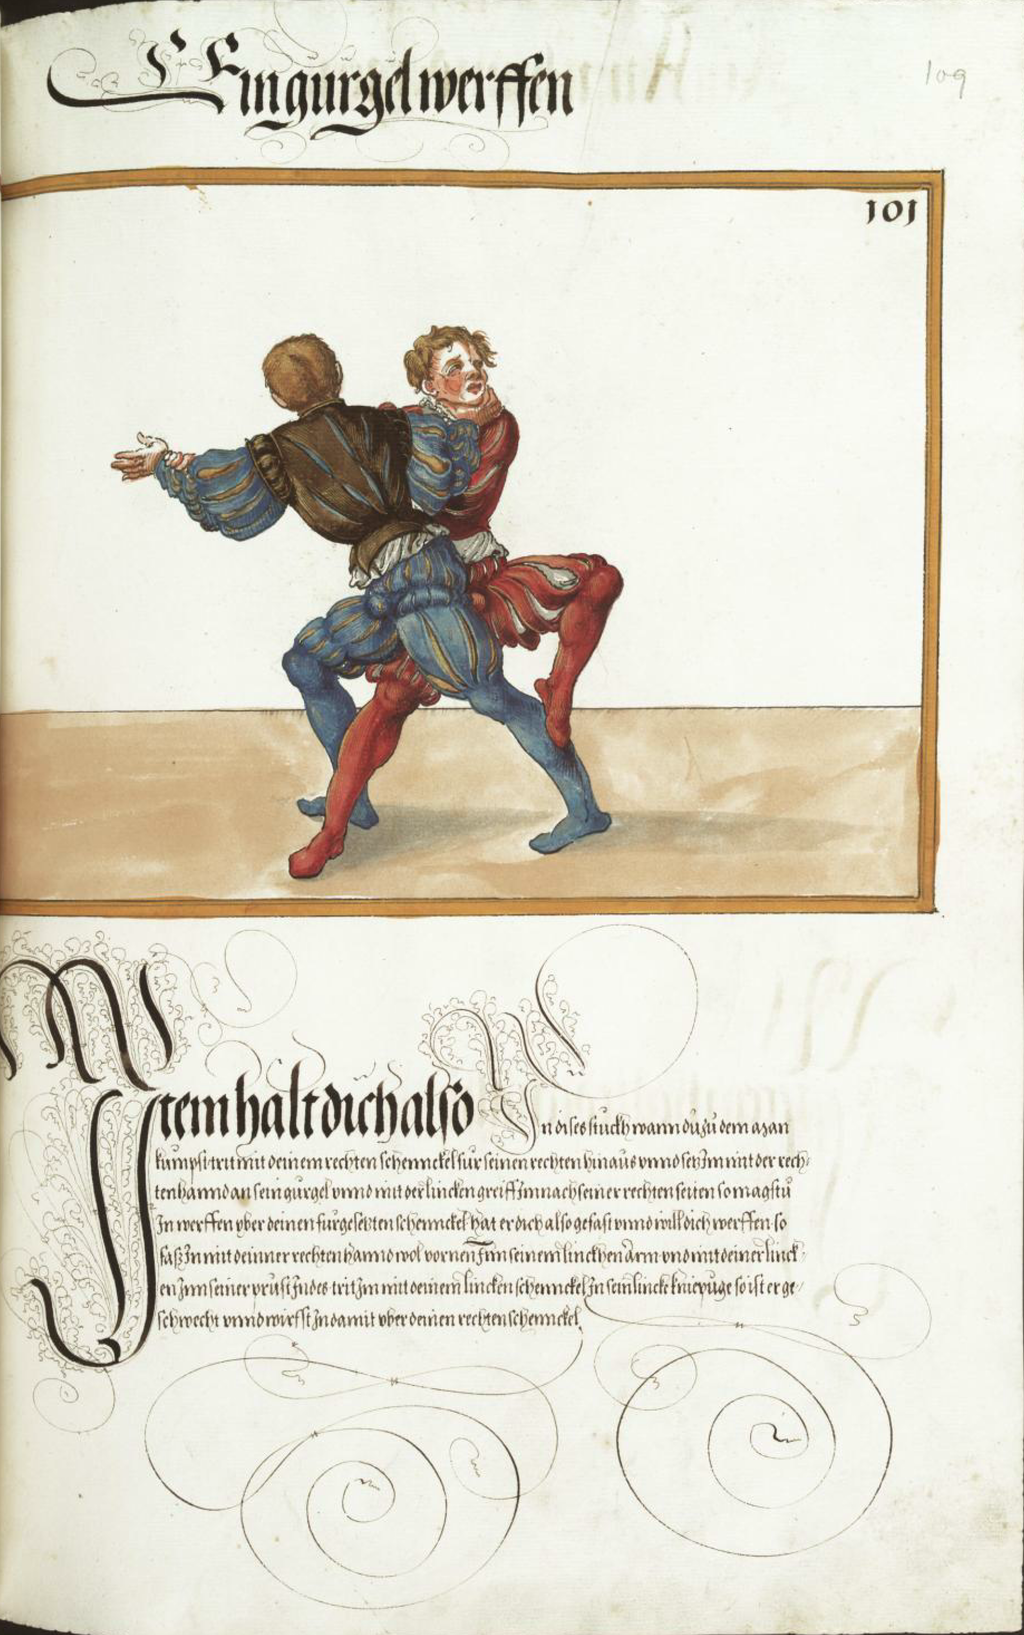 Ein gurgel werffen
109
101
Item halt dich also In dises stuckh wann du zu dem a3an
kumpst trit mit deinem rechten schennckel fur seinen rechten hinaus vnnd setz Im mit der rech-
ten hannd an sein gurgel vnnd mit der lincken greiff Im nach seiner rechten seiten so magstu
In werffen vber deinen furgesetzten schennckel hat er dich also gefast vnnd will dich werffen so
fass In mit deinner rechten hannd wol vornen Inn seinem linckhen Arm vnd mit deiner linck-
en Inn seiner prust Indes trit Im mit deinem lincken schennckel In sein lincke kniepuge so ist er ge-
schwecht vnnd wirfst In damit vber deinen rechten schennckel